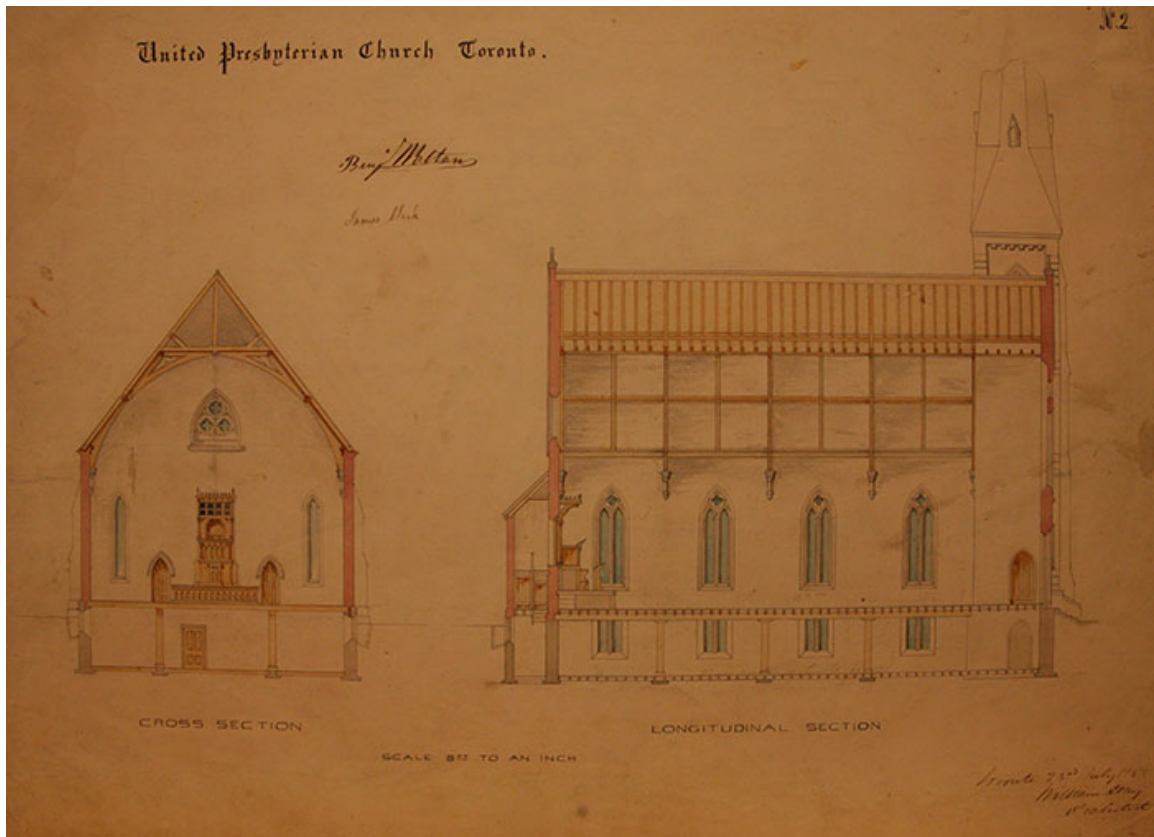 Nº 2
United Presbyterian Church Toronto.
James
CROSS SECTION
LONGITUDINAL SECTION
SCALE 8FT TO AN INCH
Toronto 22nd July
William
Architect